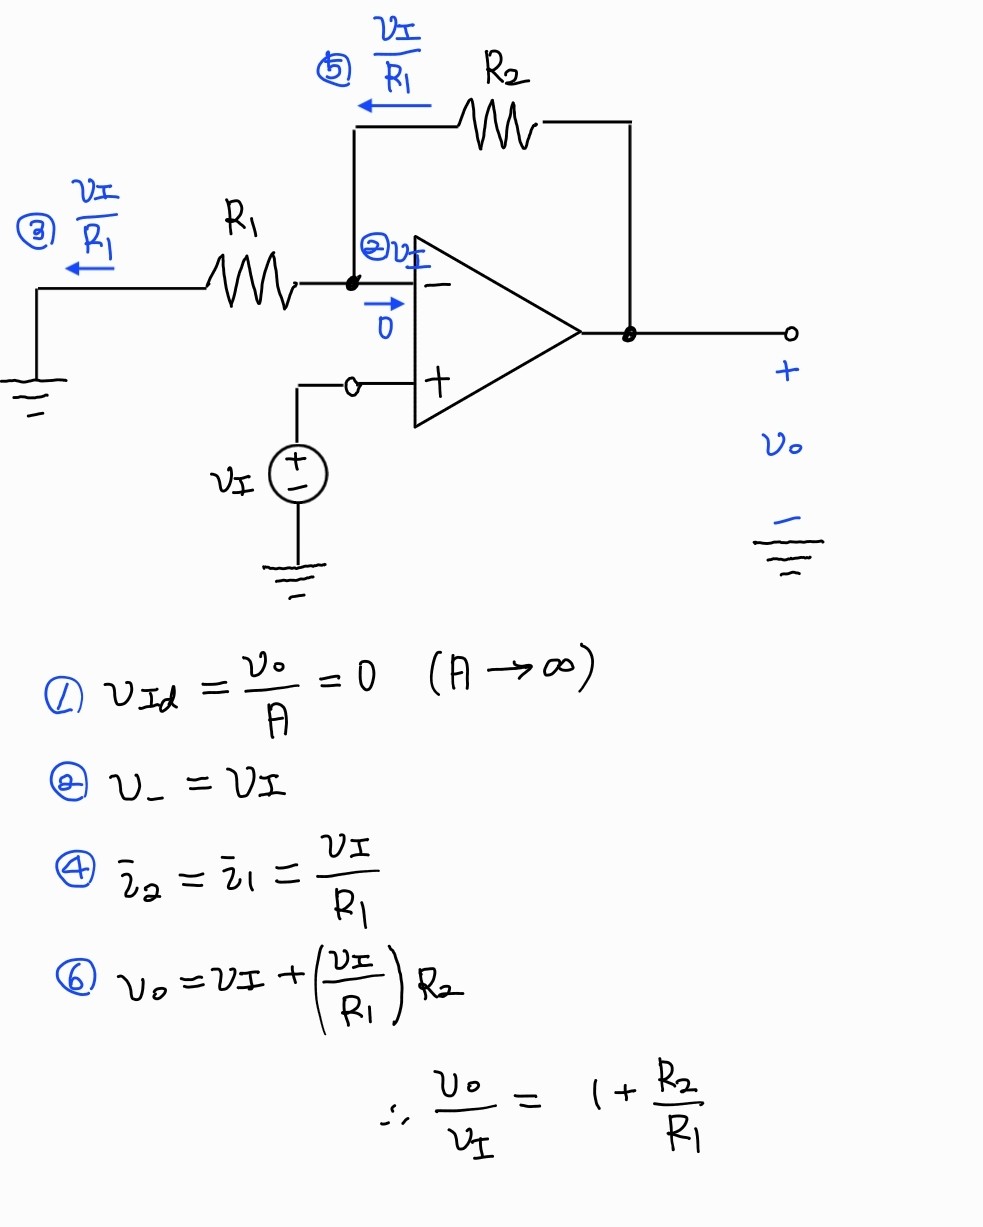 ⑤ v_I/R_1
R_2
③ v_I/R_1
R_1
② v_I
−
0
+
+
v_I
+
−
v_o
−
① v_Id = v_o/A = 0 (A → ∞)
② v_- = v_I
④ i_2 = i_1 = v_I/R_1
⑥ v_o = v_I + (v_I/R_1) R_2
∴ v_o/v_I = 1 + R_2/R_1